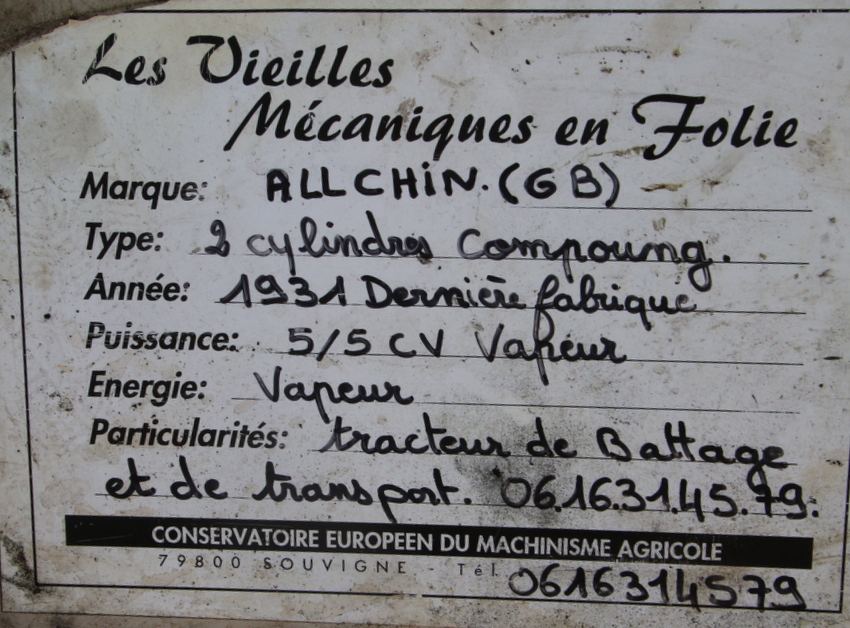 Les Vieilles
Mécaniques en Folie
Marque: ALLCHiN. (GB)
Type: 2 cylindres Compoung.
Année: 1931 Dernière fabrique
Puissance: 5/5 CV Vapeur
Energie: Vapeur
Particularités: tracteur de Battage
et de transport. 06.16.31.45.79.
CONSERVATOIRE EUROPEEN DU MACHINISME AGRICOLE
79800 SOUVIGNE - Tél. 0616314579